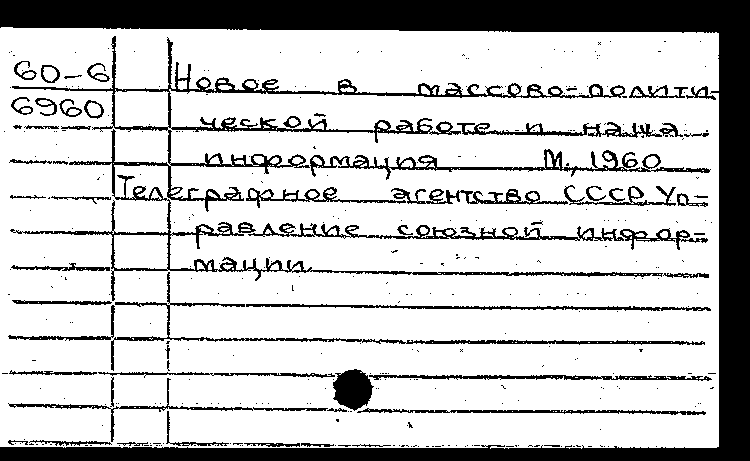 60-6 Новое в массово-полити-
6960 ческой работе и наша
информация. М., 1960
Телеграфное агентство СССР Уп-
равление союзной инфор-
мации.